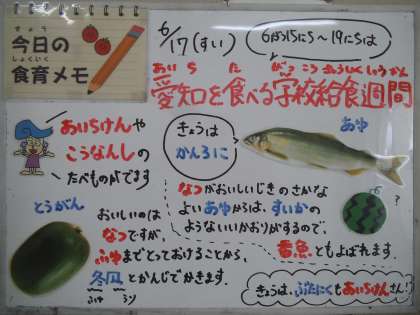 きょう
今日の
しょくいく
食育メモ
6/17(すい)
6がつ15にち〜19にちは
あいち た がっこうきゅうしょくしゅうかん
愛知を食べる学校給食週間
あいちけんや
こうなんしの
たべものです
きょうは
かんろに
あゆ
なつがおいしいじきのさかな
よいあゆからは、すいかの
ようないいかおりがするので、
香魚ともよばれます。
?
とうがん
おいしいのは
なつですが、
ふゆまでとっておけることから、
冬瓜とかんじでかきます。
ふゆ うり
きょうは、ぶたにくもあいちけんさん!